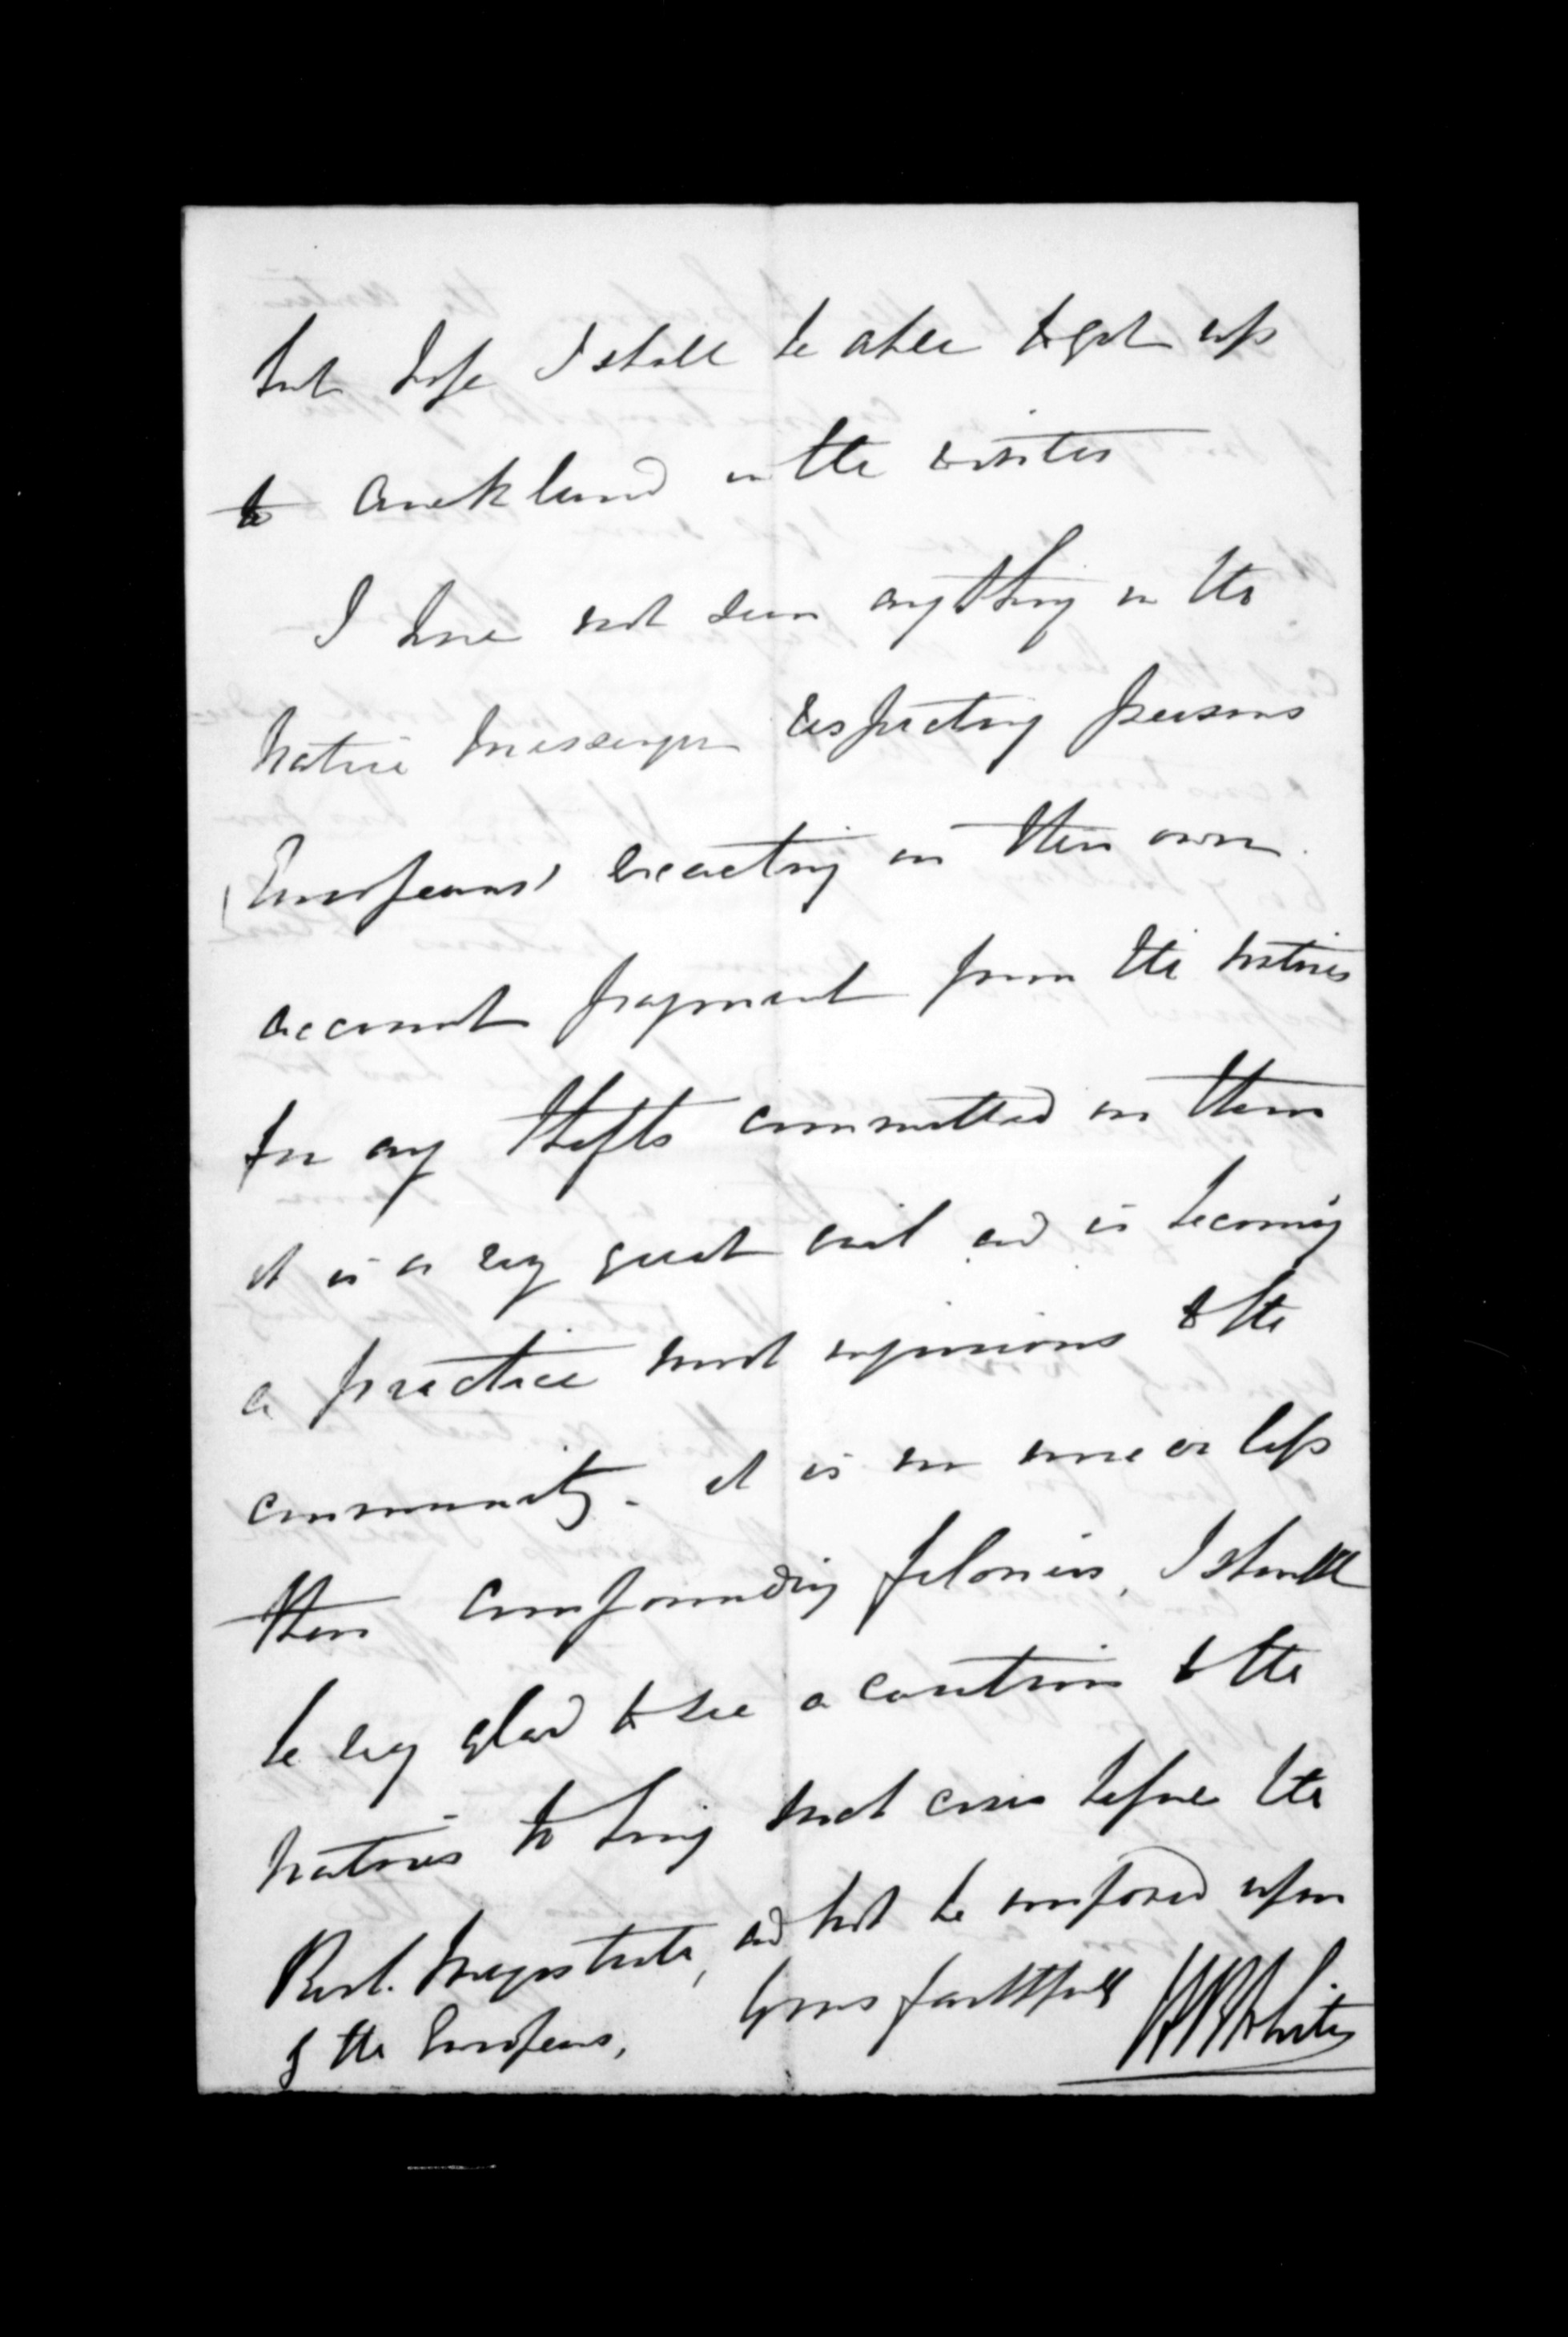 but hope I shall be able to get up
to Auckland in the winter
I have not seen anything in the
Native Messenger respecting persons
(Europeans) exacting on their own
account payment from the natives
for any thefts committed on them
it is a very great evil and is becoming
a practice most injurious to the
community. it is no more or less
than compounding felonies, I should
be very glad to see a caution to the
natives to bring such cases before the
Resd. Magistrate, and not be imposed upon
by the Europeans, Yours faithfully W B White